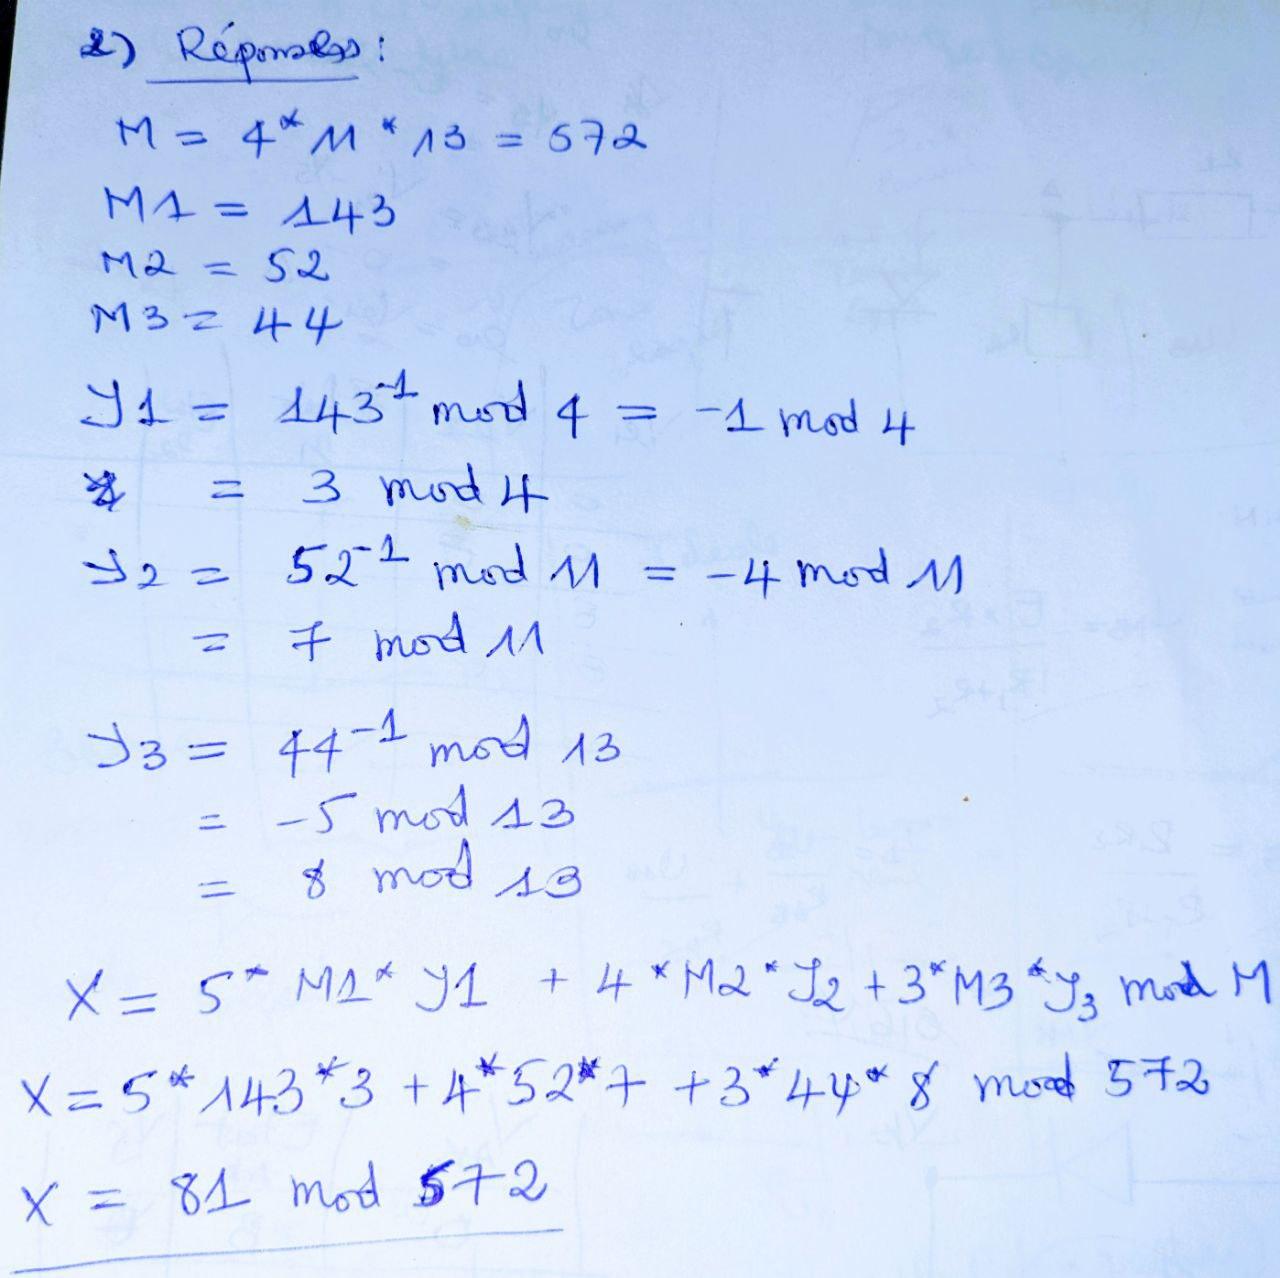 2) Réponses :
M = 4 * 11 * 13 = 572
M1 = 143
M2 = 52
M3 = 44
y1 = 143⁻¹ mod 4 = -1 mod 4
= 3 mod 4
y2 = 52⁻¹ mod 11 = -4 mod 11
= 7 mod 11
y3 = 44⁻¹ mod 13
= -5 mod 13
= 8 mod 13
X = 5 * M1 * y1 + 4 * M2 * y2 + 3 * M3 * y₃ mod M
X = 5 * 143 * 3 + 4 * 52 * 7 + 3 * 44 * 8 mod 572
X = 81 mod 572